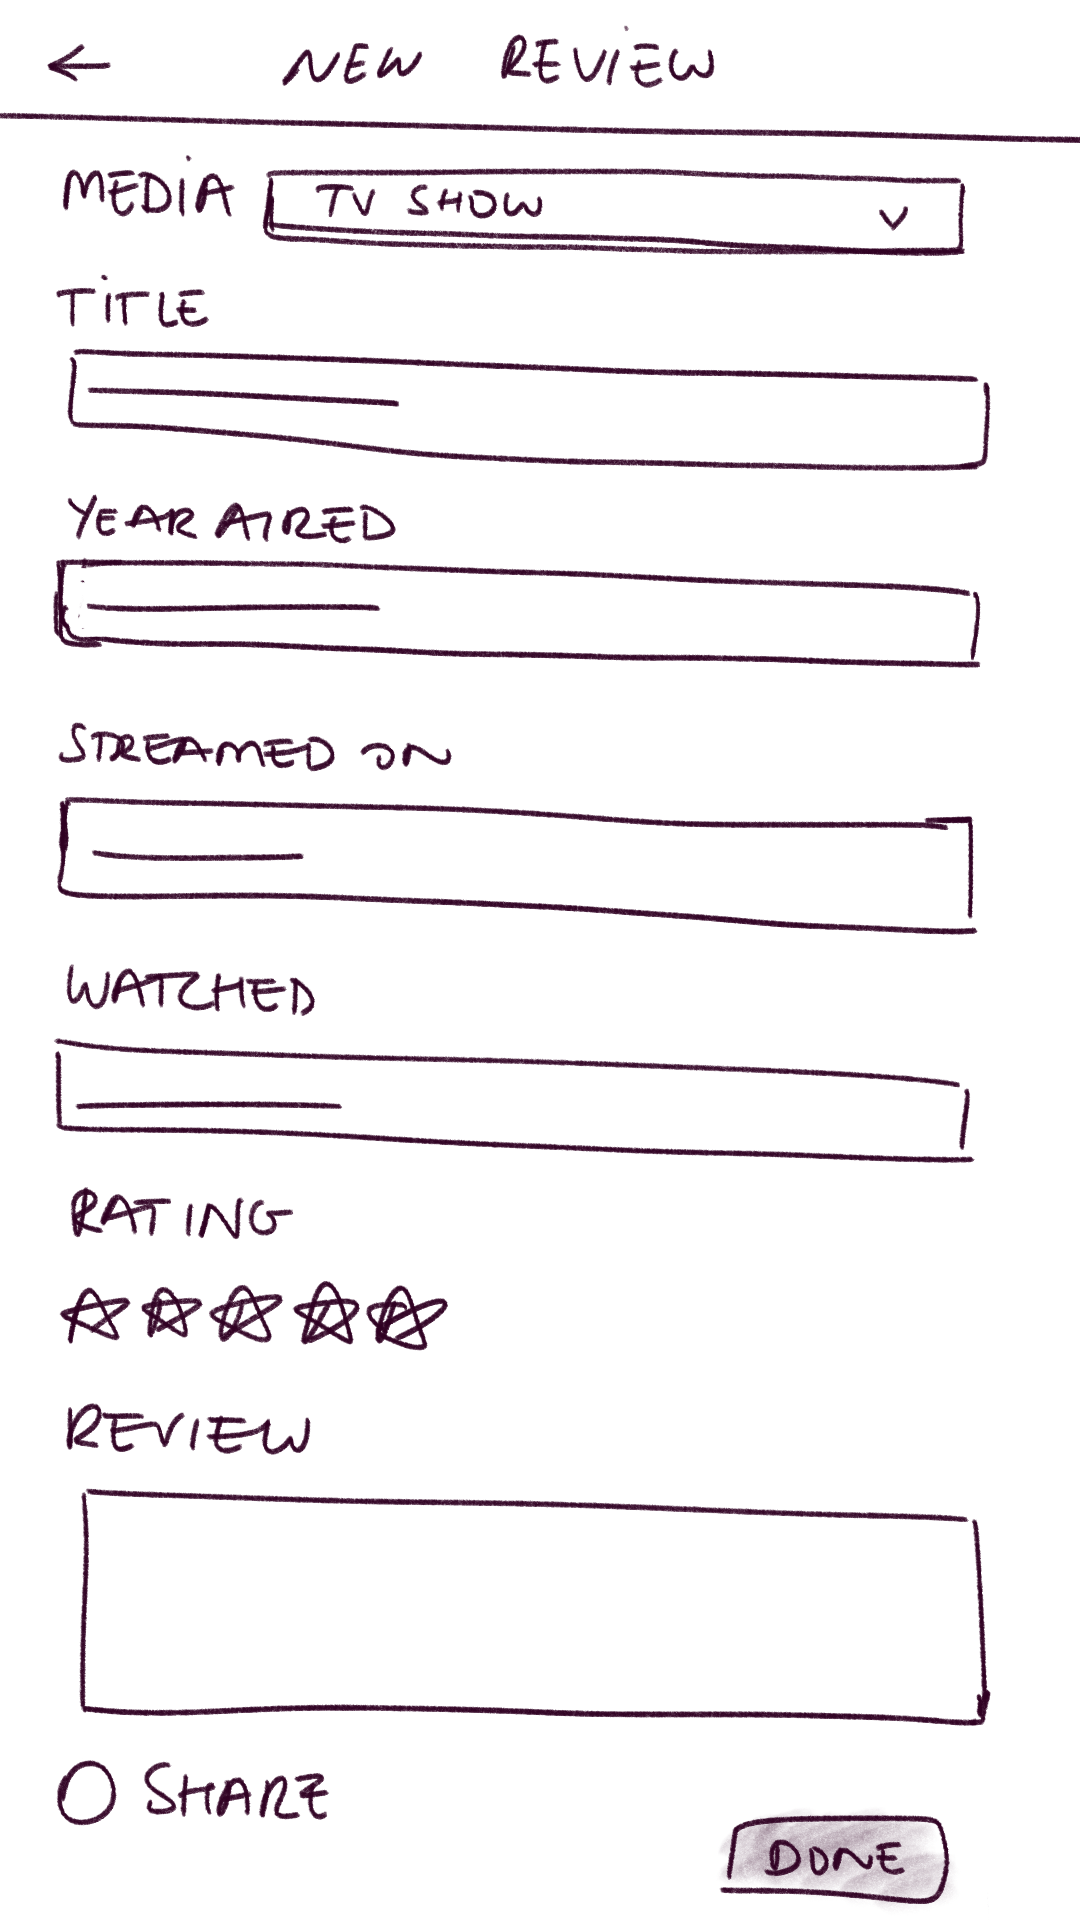 NEW REVIEW
MEDIA TV SHOW
TITLE
YEAR AIRED
STREAMED ON
WATCHED
RATING
REVIEW
SHARE
DONE